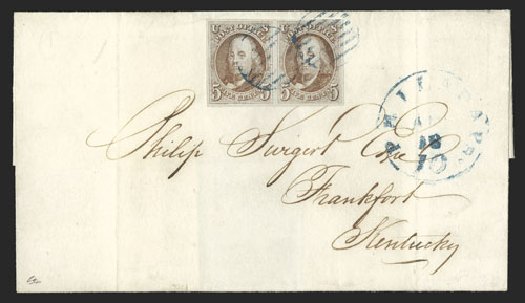 POST OFFICE POST OFFICE
5 FIVE CENTS 5 5 FIVE CENTS 5
18
10
Philip Swigert Esqr
Frankfort
Kentucky